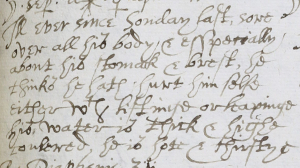 Ill ever since Sonday last, sore
over all his body, & esspetially,
about his stomak & brest, he
thinks he hath hurt him selfe
either wth liftinge or leapinge
his water is thick & highe
couloured, he is hote & thirstye